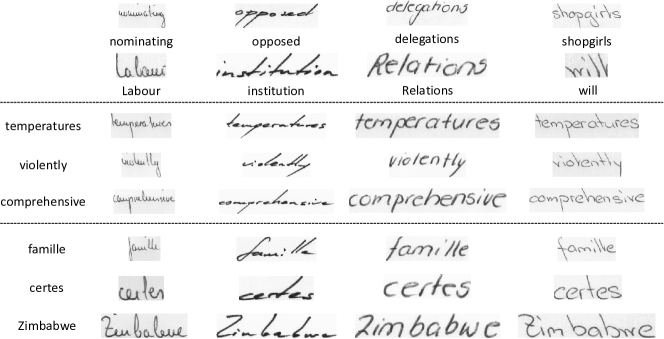 nominating opposed delegations shopgirls
nominating opposed delegations shopgirls
Labour institution Relations will
Labour institution Relations will
temperatures temperatures temperatures temperatures temperatures
violently violently violently violently violently
comprehensive comprehensive comprehensive comprehensive comprehensive
famille famille famille famille famille
certes certes certes certes certes
Zimbabwe Zimbabwe Zimbabwe Zimbabwe Zimbabwe